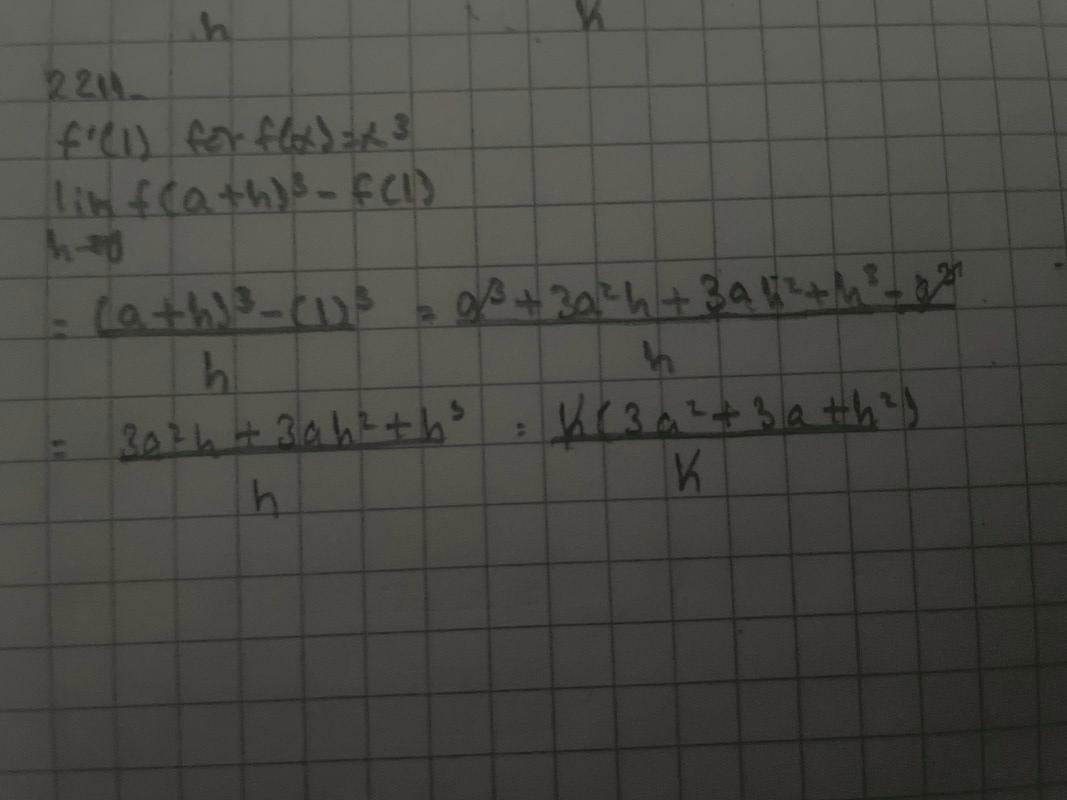 h K
2211.
f'(1) for f(x)=x³
lim f(a+h)³ - f(1)
h→0
= (a+h)³-(1)³ = a³+3a²h+3ah²+h³-a³
h h
= 3a²h+3ah²+h³ = h(3a²+3a+h²)
h h